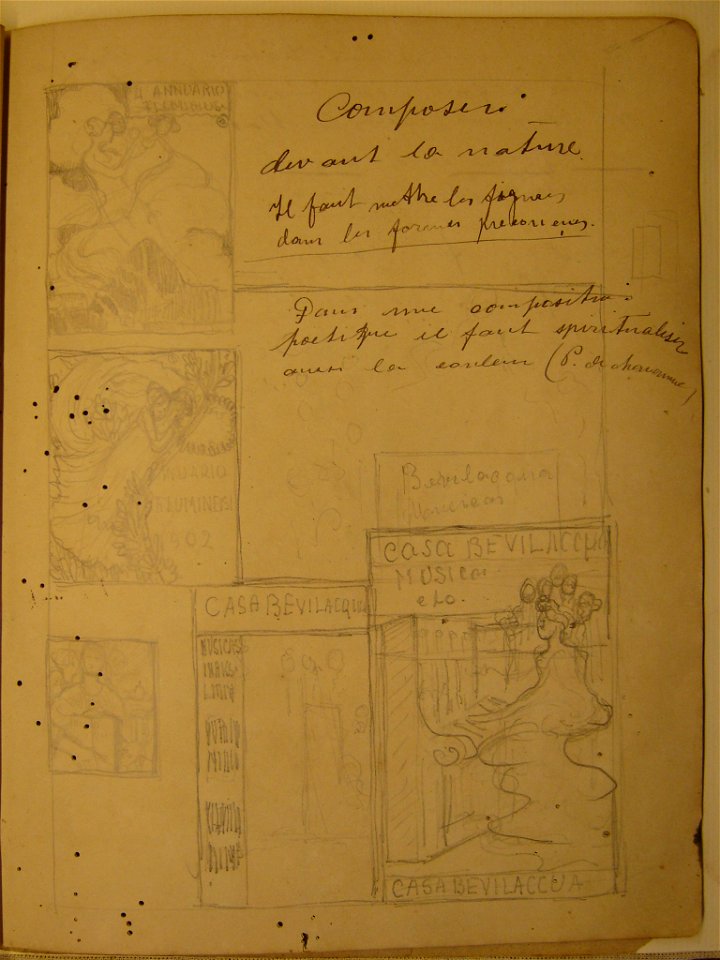 II ANNUARIO
FLUMINENSE
Composer
devant la nature.
Il faut mettre les figures
dans les formes préconçues.
Dans une composition
poetique il faut spiritualiser
aussi la couleur (P. de chavannes)
ANNUARIO
FLUMINENSE
1902
Bevilacqua
Musicas
CASA BEVILACCUA
MUSICas
etc.
CASA BEVILACQUA
MUSICAS
CASA BEVILACCUA